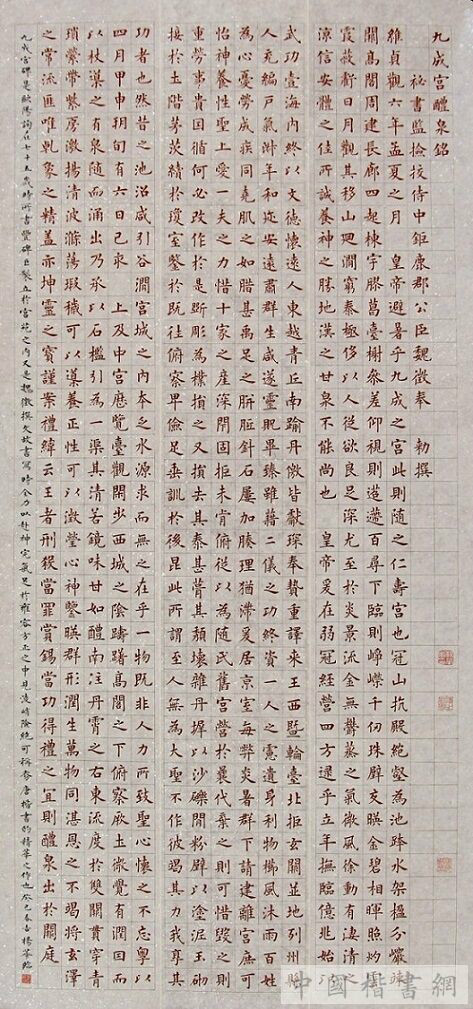 九成宮醴泉銘
秘書監檢校侍中鉅鹿郡公臣魏徵奉 勅撰
維貞觀六年孟夏之月 皇帝避暑乎九成之宮此則隨之仁壽宮也冠山抗殿絕壑為池跨水架楹分巖竦
闕高閣周建長廊四起棟宇膠葛臺榭參差仰視則迢遰百尋下臨則崢嶸千仞珠璧交暎金碧相暉照灼雲
霞蔽虧日月觀其移山迴澗窮泰極侈以人從欲良足深尤至於炎景流金無鬱蒸之氣微風徐動有淒清之
涼信安體之佳所誠養神之勝地漢之甘泉不能尚也 皇帝爰在弱冠經營四方逮乎立年撫臨億兆始以
武功壹海內終以文德懷遠人東越青丘南踰丹徼皆獻琛奉贄重譯來王西暨輪臺北拒玄闕並地列州縣
人充編戶氣淑年和迩安遠肅群生咸遂靈貺畢臻雖藉二儀之功終資一人之慮遺身利物櫛風沐雨百姓
為心憂勞成疾同堯肌之如腊甚禹足之胼胝針石屢加腠理猶滯爰居京室每弊炎暑群下請建離宮庶可
怡神養性聖上愛一夫之力惜十家之產深閉固拒未肯俯從以為隨氏舊宮營於曩代棄之則可惜毀之則
重勞事貴因循何必改作於是斲彫為樸損之又損去其泰甚葺其頹壞雜丹墀以沙礫間粉壁以塗泥玉砌
接於土階茅茨續於瓊室鑒於既往俯察卑儉足垂訓於後昆此所謂至人無為大聖不作彼竭其力我享其
功者也然昔之池沼咸引谷澗宮城之內本乏水源求而無之在乎一物既非人力所致聖心懷之不忘粵以
四月甲申朔旬有六日己亥 上及中宮歷覽臺觀閑步西城之陰躊躇高閣之下俯察厥土微覺有潤因而
以杖導之有泉隨而涌出乃承以石檻引為一渠其清若鏡味甘如醴南注丹霄之右東流度於雙闕貫穿青
瑣縈帶紫房激揚清波滌蕩瑕穢可以導養正性可以澂瑩心神鑒暎群形潤生萬物同湛恩之不竭將玄澤
之常流匪唯乾象之精蓋亦坤靈之寶謹案禮緯云王者刑殺當罪賞錫當功得禮之宜則醴泉出於闕庭
九成宮碑是歐陽詢在七十五歲時所書豐碑巨製立於宮苑之內又是魏徵撰文故書寫時全力以赴神完氣足於雍容方正之中見淩峭險絕可稱為唐楷書的精華之作也癸巳春吉楊華臨
中國楷書網